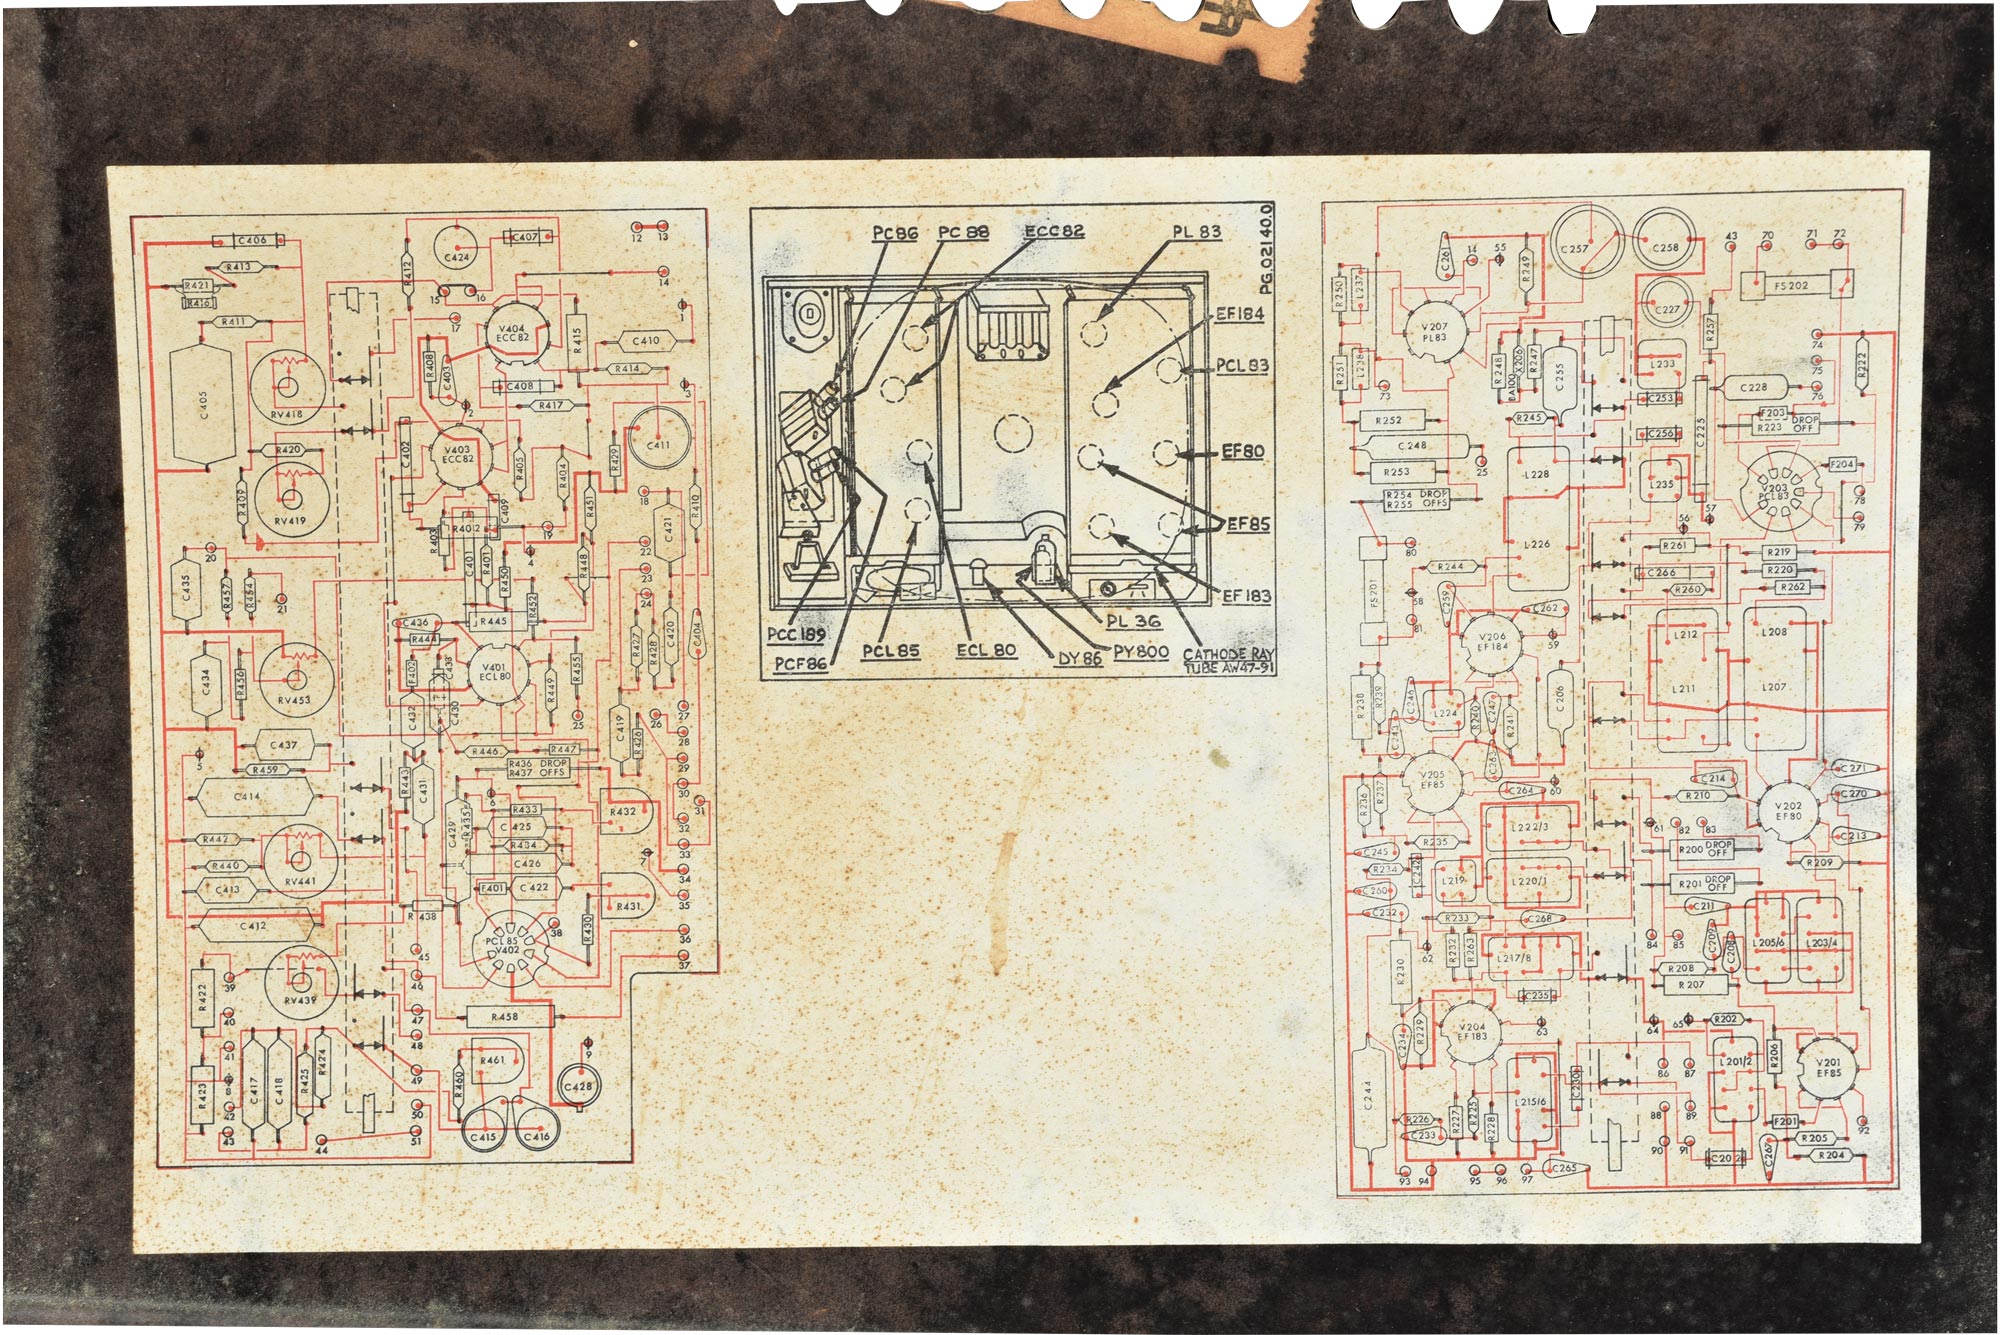 C406
R413
R421
R416
R411
C405
RV418
R420
RV419
R409
20
C435
R457
R454
21
C434
R456
RV453
5
C437
R459
C414
R442
RV441
R440
C413
C412
R422
39
RV439
40
41
R423
8
42
43
C417
C418
R425
R424
44
R412
C424
C407
12
13
14
15
16
17
V404
ECC82
R415
1
R408
C403
C408
C410
R414
3
R417
2
C402
V403
ECC82
R405
R404
R429
C411
C409
R451
18
R410
R403
R402
19
C421
C401
R401
R450
4
R448
22
23
24
R452
C436
R445
R444
R427
R428
C420
C404
F402
C438
V401
ECL80
R449
R455
C432
C430
25
C419
R426
26
27
28
R446
R447
29
R436 DROP
R437 OFFS
R443
C431
30
31
6
R433
R432
C429
R435
C425
32
R434
7
33
C426
34
F401
C422
R431
35
R438
R430
38
36
PCL85
V402
37
45
46
47
R458
48
R461
9
49
R460
C428
50
51
C415
C416
PG.02140.0
PC86
PC88
ECC82
PL 83
EF184
PCL83
EF80
EF85
EF183
PCC189
PL 36
PCF86
PCL85
ECL80
DY86
PY800
CATHODE RAY
TUBE AW47-91
C261
14
55
R249
C257
C258
43
70
71
72
R250
L237
FS202
C227
V207
PL83
R257
74
R251
L238
R248
BA100
X206
R247
C255
L233
75
R222
73
C228
76
C253
R252
R245
F203
R223
DROP
OFF
C248
C256
C225
25
L228
R253
L235
F204
V203
PCL83
R254 DROP
R255 OFFS
78
56
57
79
80
L226
R261
R219
R244
C266
R220
FS201
R260
R262
58
C259
C262
81
V206
EF184
59
L212
L208
R238
R239
C246
L224
C247
R240
R241
C206
L211
L207
C243
C263
V205
EF85
C264
60
C214
C271
C270
R236
R237
R210
V202
EF80
L222/3
61
82
83
C213
R235
C245
R200 DROP
OFF
C242
R209
R234
L219
L220/1
R201 DROP
OFF
C260
C232
R233
C268
C211
R230
62
R232
R263
L217/8
84
85
C209
C208
L205/6
L203/4
R208
R207
C235
R229
C234
V204
EF183
63
64
65
R202
R206
L201/2
V201
EF85
C244
86
87
L215/6
C230
R226
R227
R225
88
89
F201
92
C233
R228
90
91
C267
R205
C202
R204
93
94
95
96
97
C265